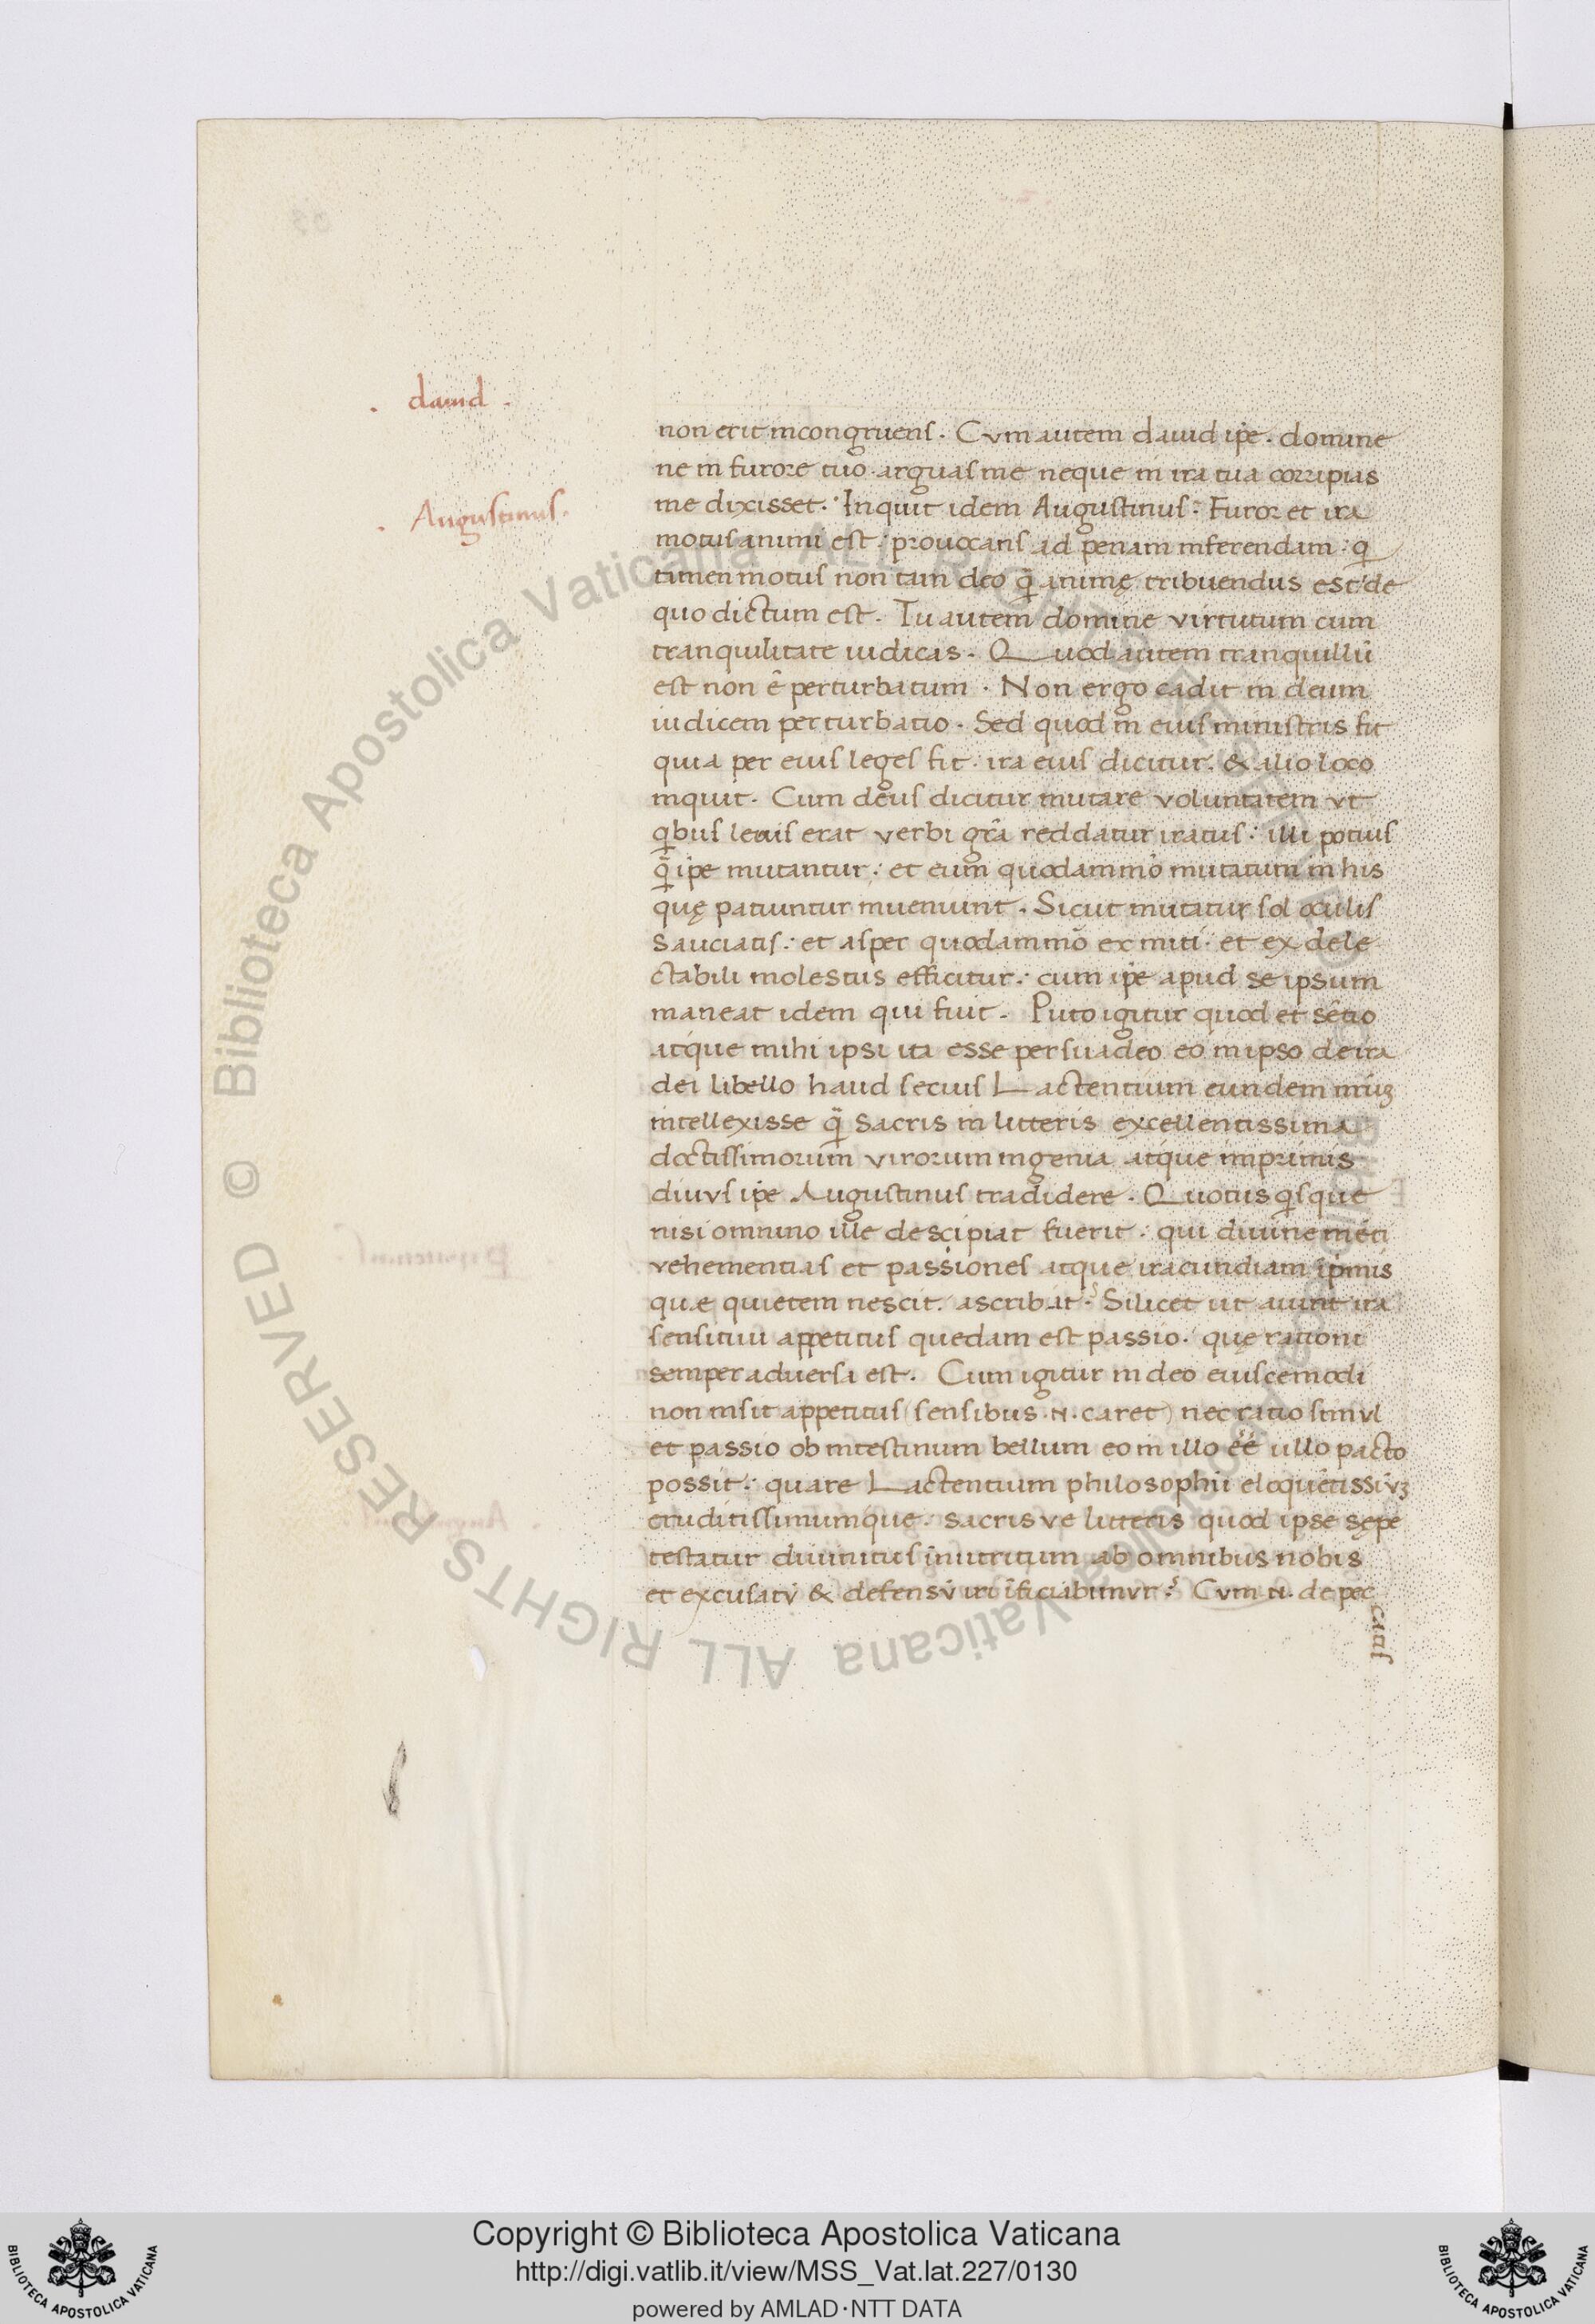 . dauid .
. Augustinus .
non erit incongruens . Cvm autem dauid ip̄e . domine
ne in furore tuo arguas me neque in ira tua corripias
me dixisset . Inquit idem Augustinus : Furor et ira
motus animi est : prouocans ad penam inferendam : q̄
tamen motus non tam deo q̄ animę tribuendus est de
quo dictum est . Tu autem domine virtutum cum
tranquilitate iudicas . Quod autem tranquillū
est non ē perturbatum . Non ergo cadit in deum
iudicem perturbatio . Sed quod in eius ministris fit
quia per eius leges fit . ira eius dicitur . & alio loco
inquit . Cum deus dicitur mutare voluntatem vt
qbus lenis erat verbi gr̄a reddatur iratus : illi potius
q̄ ip̄e mutantur : et eum quodammō mutatum in his
quę patiuntur inueniunt . Sicut mutatur sol oculis
sauciatis : et asper quodammō ex miti . et ex dele
ctabili molestus efficitur : cum ip̄e apud se ipsum
maneat idem qui fuit . Puto igitur quod et sētio
atque mihi ipsi ita esse persuadeo eo in ipso de ira
dei libello haud secus Lactentium eundem nr̄uʒ
intellexisse q̄ sacris in litteris excellentissima
doctissimorum virorum ingenia atque imprimis
diuus ip̄e Augustinus tradidere . Quotus qsque
nisi omnino ille descipiat fuerit : qui diuine mēti
vehementias et passiones atque iracundiam ip̄mis
quæ quietem nescit . ascribat . Silicet ut aiunt ira
sensitiui appetitus quedam est passio . quę rationi
semper aduersa est . Cum igitur in deo eiuscemodi
non insit appetitus (sensibus . N . caret) nec ratio simul
et passio ob intestinum bellum eo in illo ēē ullo pacto
possit : quare Lactentium philosophū eloquētissīuʒ
eruditissimumque . sacris ve litteris quod ipse sępe
testatur diuinitus īnutritum ab omnibus nobis
et excusatū & defensū iri īficiabimur ? Cvm N . de pec
catis
Copyright © Biblioteca Apostolica Vaticana
http://digi.vatlib.it/view/MSS_Vat.lat.227/0130
powered by AMLAD·NTT DATA
BIBLIOTECA APOSTOLICA VATICANA
BIBLIOTECA APOSTOLICA VATICANA
© Biblioteca Apostolica Vaticana ALL RIGHTS RESERVED